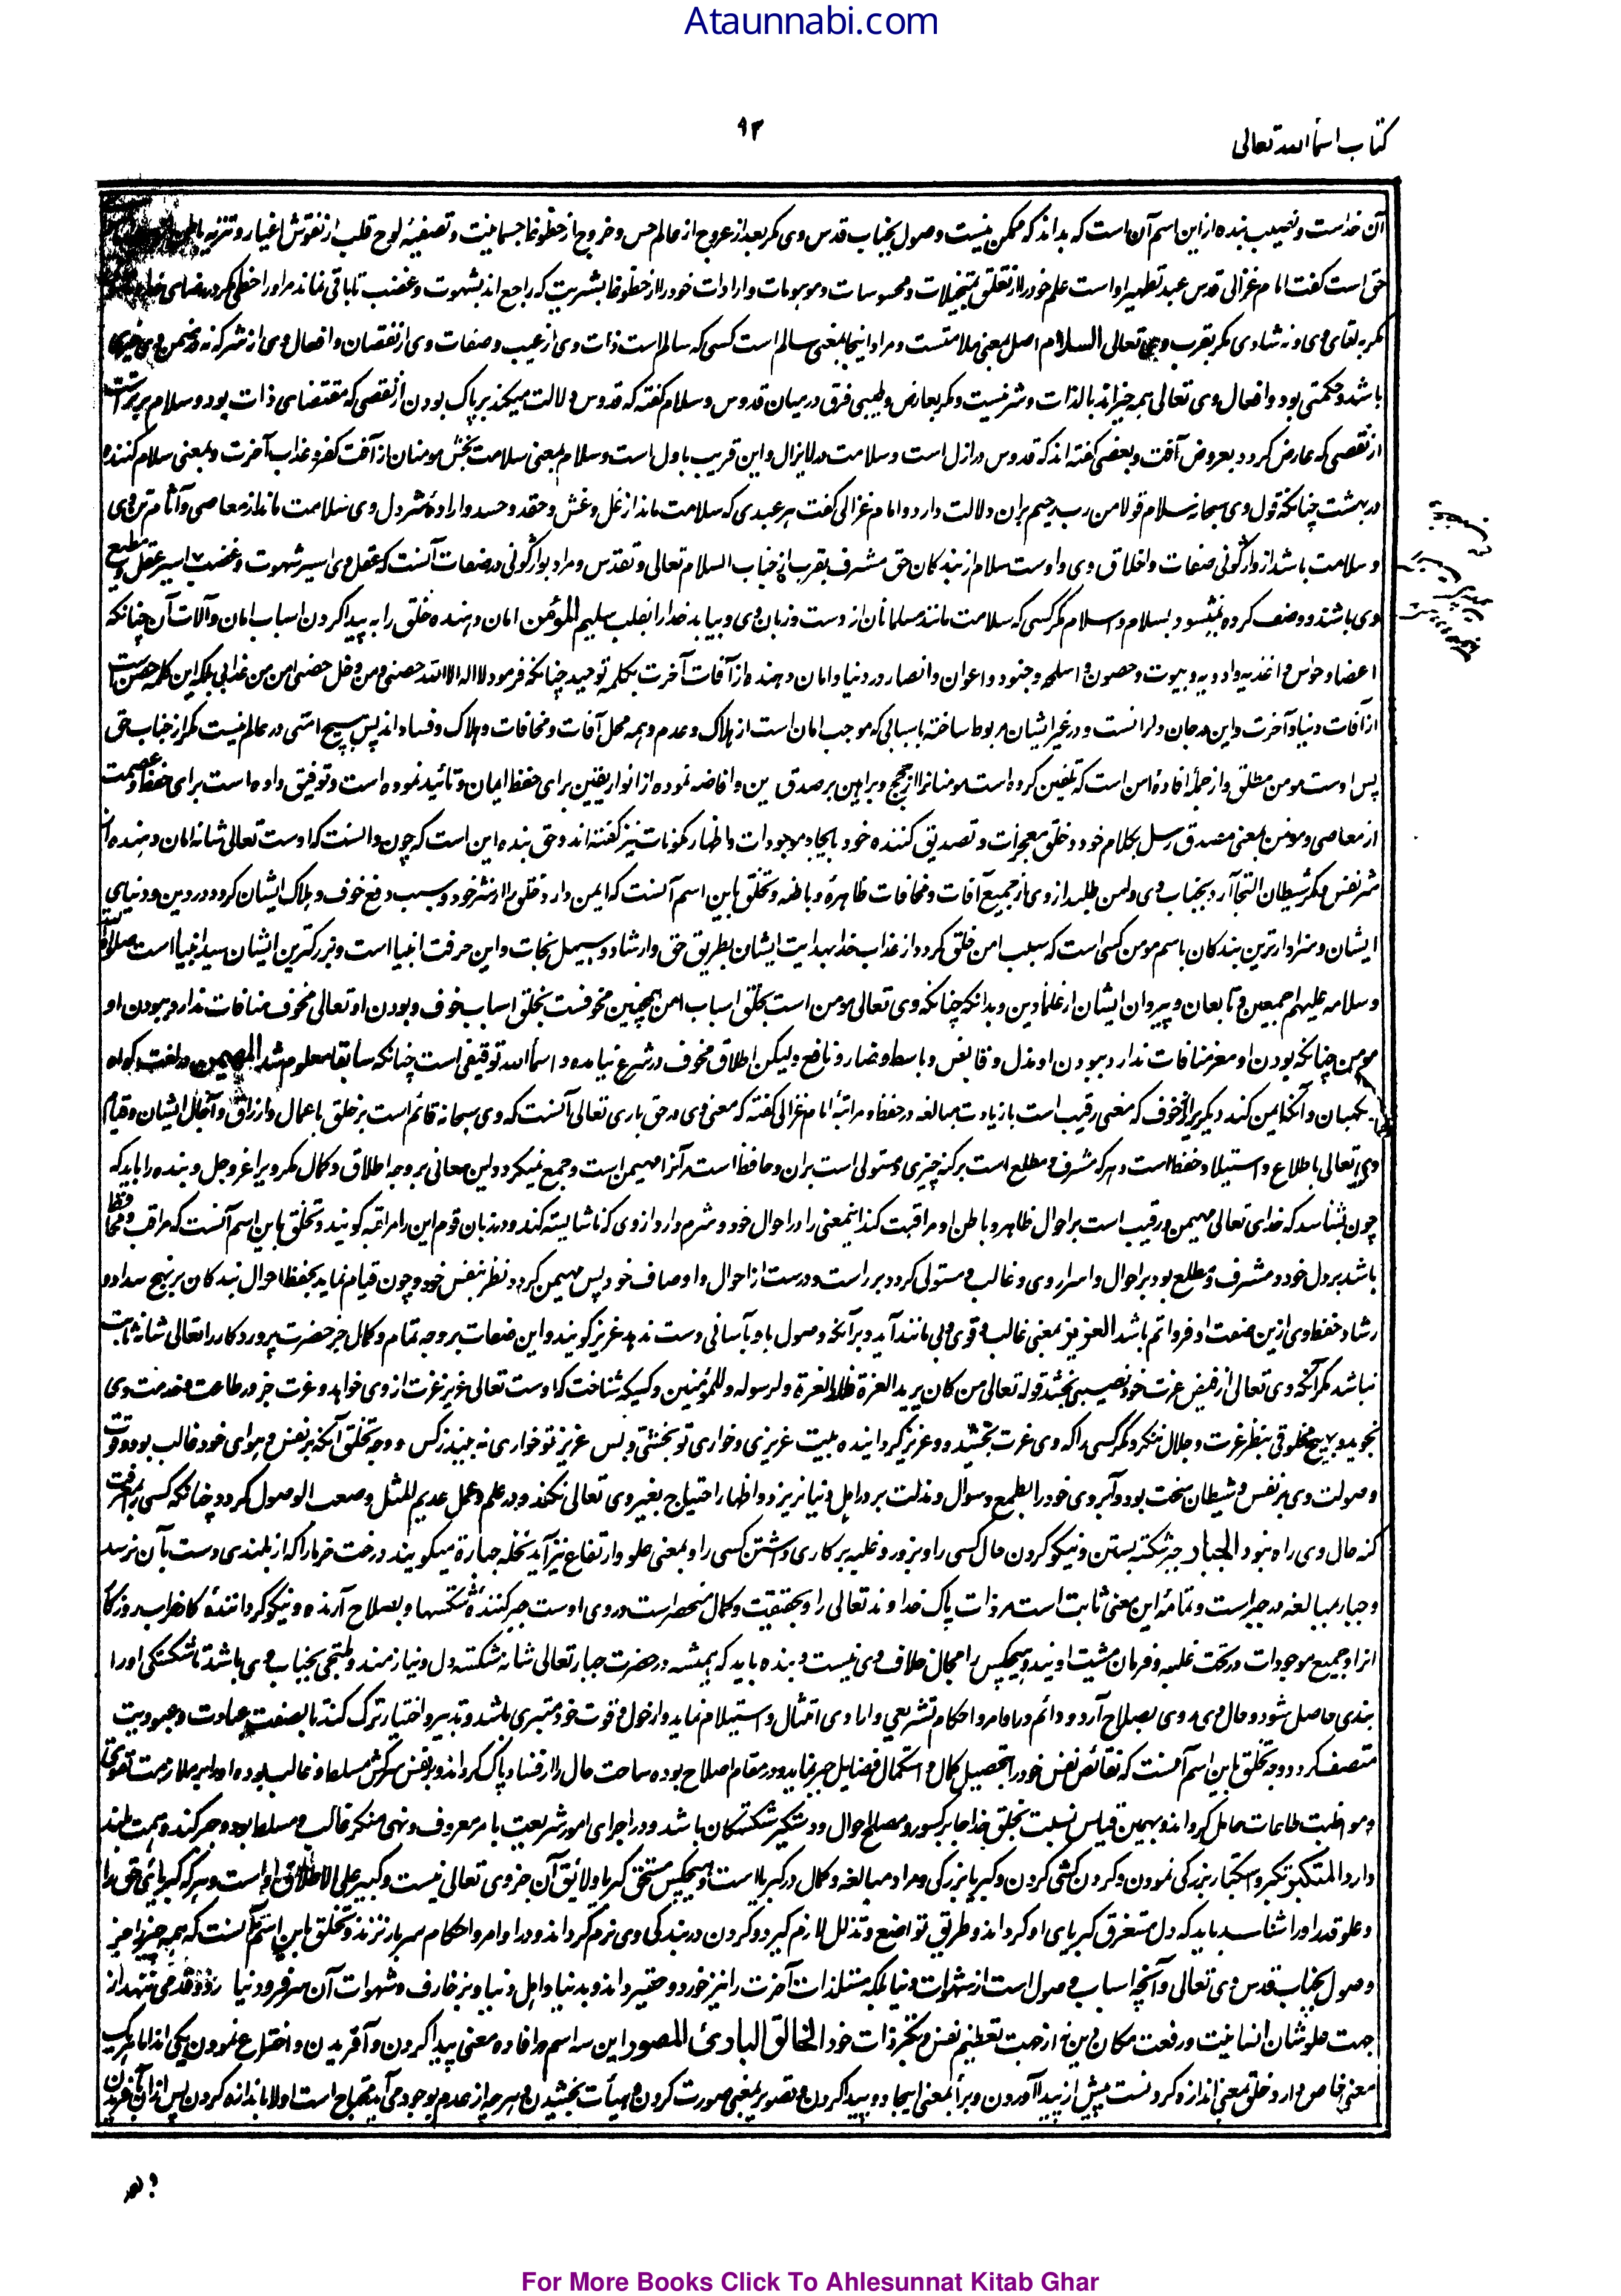 Ataunnabi.com
کتاب اسماالله تعالی
۹۲
آن خداست و نصیب بنده ازاین اسم آن است که بداند که ممکن نیست وصول بجناب قدس وی مگر بعد از عروج از عالم حس و خروج از حظوظ جسمانیت و تصفیۂ لوح قلب از نقوش اغیار و تنزیه
حق است گفت امام غزالی قدس عبد تطهیر اوست علم خود را از تعلق بتخیلات و محسوسات و موهومات و ارادات خود را از حظوظ بشریت که راجع اند بشهوت و غضب تا باقی نماند مر او را حظی مگر در
مگر بلقای وی و نه شادی مگر بقرب وی تعالی السلام اصل بمعنی سلامتست و مراد اینجا بمعنی سالم است کسی که سالم است ذات وی از عیب و صفات وی از نقصان و افعال وی از شر که نه در ضمن وی خیری
باشد و حکمتی بود و افعال وی تعالی همه خیر اند بالذات و شر نیست مگر بعارض و طیبی فرق در میان قدوس و سلام گفته که قدوس دلالت میکند بر پاک بودن از نقصی که مقتضای ذات بود و سلام بر
از نقصی که عارض گردد بعروض آفت و بعضی گفته اند که قدوس در ازل است و سلامت در لایزال و این قریب باول است و سلام بمعنی سلامت بخش مومنان از آفت کفر و عذاب آخرت و بمعنی سلام کننده
در بهشت چنانکه قول وی سبحانه سلام قولا من رب رحیم بران دلالت دارد و امام غزالی گفت هر عبدی که سلامت ماند از غل و غش و حقد و حسد و ارادۂ شر دل وی سلامت ماند از معاصی و آثام تن وی
و سلامت باشد از واژگونی صفات و اخلاق وی و اوست سلام از بندگان حق مشرف بقرب از جناب السلام تعالی و تقدس و مراد بواژگونی در صفات آنست که عقل وی اسیر شهوت و غضب اسیر عقل و مطیع
وی باشند و وصف کرده نمیشود بسلام و اسلام مگر کسی که سلامت مانند مسلمانان از دست و زبان وی و بیاید خدا را بقلب سلیم المؤمن امان دهنده خلق را به پیدا کردن اسباب امان و آلات آن چنانکه
اعضا و حواس و اغذیه و ادویه و بیوت و حصون و اسلحه و جنود و اعوان و انصار در دنیا و امان دهنده از آفات آخرت بکلمۂ توحید چنانکه فرمود لااله الاالله حصنی و من دخل حصنی امن من عذابی بلکه این کلمه حصن است
از آفات دنیا و آخرت و این در جان و لرانست و در غیر ایشان مربوط ساخته باسبابی که موجب امان است از هلاک و عدم و همه محل آفات و مخافات و هلاک و فساد اند پس هیچ امنی در عالم نیست مگر از جناب حق
پس اوست مومن مطلق و از جملۂ افادۂ امن است که تلقین کرده است مومنانرا از حجج و براهین بر صدق دین و افاضه نموده از انوار یقین برای حفظ ایمان و تائید نموده است و توفیق داده است برای حفظ و عصمت
از معاصی و مومن بمعنی مصدق رسل بکلام خود و خلق معجزات و تصدیق کننده خود بایجاد موجودات و اظهار مکونات نیز گفته اند و حق بنده این است که چون دانست که اوست تعالی شانه امان دهنده از
شر نفس و مکر شیطان التجا آرد بجناب وی و امن طلبد از وی از جمیع آفات و مخافات ظاهره و باطنه و تخلق باین اسم آنست که ایمن دارد خلق را از شر خود و سبب دفع خوف و هلاک ایشان گردد در دین و دنیای
ایشان و سزاوارترین بندگان باسم مومن کسی است که سبب امن خلق گردد از عذاب خدا بهدایت ایشان بطریق حق و ارشاد و سبیل نجات و این حرفت انبیا است و بزرگترین ایشان سید انبیا است صلوات الله
و سلامه علیهم اجمعین و تابعان و پیروان ایشان از علماء دین و بدانکه چنانکه وی تعالی مومن است بخلق اسباب امن همچنین مخوفست بخلق اسباب خوف و بودن او تعالی مخوف منافات ندارد ببودن او
مومن چنانکه بودن او معز منافات ندارد ببودن او مذل و قابض و باسط و ضار و نافع و لیکن اطلاق مخوف در شرع نیامده و اسماالله توقیفی است چنانکه سابقا معلوم شد المهیمن در لغت گواه
نگهبان و آنکه ایمن کند دیگری را از خوف که معنی رقیب است با زیادت مبالغه در حفظ و مراتبه امام غزالی گفته که معنی وی در حق باری تعالی آنست که وی سبحانه قائم است بر خلق باعمال و ارزاق و آجال ایشان و قیام
وی تعالی باطلاع و استیلا و حفظ است و هر که مشرف و مطلع است بر کنه چیزی و مستولی است بران و حافظ است مر آنرا مهیمن است و جمع نمیگردد این معانی بر وجه اطلاق و کمال مگر ویرا عز و جل و بنده را باید که
چون بشناسد که خدای تعالی مهیمن و رقیب است بر احوال ظاهر و باطن او مراقبت کند اینمعنی را در احوال خود و شرم دارد از وی که ناشایسته کند و در زبان قوم این را مراقبه گویند و تخلق باین اسم آنست که مراقب و محافظ
باشد بر دل خود و مشرف و مطلع بود بر احوال و اسرار وی و غالب و مستولی گردد بر راست و درست از احوال و اوصاف خود پس مهیمن گردد نظر بنفس خود و چون قیام نماید بحفظ احوال بندگان بر نهج سداد و
رشاد حفظ وی ازین صفت اوفر و اتم باشد العزیز بمعنی غالب و قوی و بی مانند آید و بر آنکه وصول باو بآسانی دست ندهد عزیز گویند و این صفات بر وجه تمام و کمال جز حضرت پروردگار را تعالی شانه ثابت
نباشد مگر آنکه وی تعالی از فیض عزت خود نصیبی بخشد قوله تعالی من کان یرید العزة فلله العزة و لرسوله و للمؤمنین و کسیکه شناخت که اوست تعالی عزیز عزت از وی خواهد و عزت جز در طاعت و خدمت وی
نجوید و بهیچ مخلوقی بنظر عزت و جلال ننگرد مگر کسی را که وی عزت بخشیده و عزیز گردانیده بیت عزیزی و خواری تو بخشی و بس عزیز تو خواری نه بیند ز کس و وجه تخلق آنکه بر نفس و هوای خود غالب بود و قوت
و صولت وی بر نفس و شیطان سخت بود و آبروی خود را بطمع و سوال و مذلت بر در اهل دنیا نریزد و اظهار احتیاج بغیر وی تعالی نکند و در علم و عمل عدیم المثل و صعب الوصول گردد چنانکه کسی بمعرفت
کنه حال وی راه نبود الجبار جبر شکسته بستن و نیکو کردن حال کسی را و بزور و غلبه بر کاری داشتن کسی را و بمعنی علو و ارتفاع نیز آید نخله جباره میگویند درخت خرما را که از بلندی دست بآن نرسد
و جبار مبالغه در جبر است و تمامۂ این معنی ثابت است مر ذات پاک خداوند تعالی را و بحقیقت و کمال منحصر است در وی اوست جبر کنندۂ شکستها و بصلاح آرنده و نیکو گردانندۂ کار خراب روزگار
انرا و جمیع موجودات در تحت غلبه و فرمان مشیت اویند و هیچکس را مجال خلاف وی نیست و بنده باید که همیشه در حضرت جبار تعالی شانه شکسته دل و نیازمند و ملتجی بجناب وی باشد تا شکستگی او را
بندی حاصل شود و حال وی روی بصلاح آرد و دائم در اوامر و احکام تشریعی و ارادی امتثال و استیلام نماید و از حول و قوت خود متبری باشد و تدبیر و اختیار ترک کند تا بصفت عبادت و عبودیت
متصف گردد و وجه تخلق باین اسم آنست که نقائص نفس خود را بتحصیل کمال و استکمال فضایل جبر نماید و در مقام اصلاح بوده ساحت حال را از فساد پاک گرداند و بر نفس سرکش مسلط و غالب بوده او را بر ملازمت تقوی
و مواظبت طاعات حامل گرداند و بهمین قیاس نسبت بخلق خدا جابر کسور و مصلح احوال و دستگیر شکستگان باشد و در اجرای امور شریعت بامر معروف و نهی منکر غالب و مسلط بود و جبر کند و همت بلند
دارد المتکبر تکبر و استکبار بزرگی نمودن و گردن کشی کردن و کبریا بزرگی و مراد مبالغه و کمال در کبریا است و هیچکس مستحق کبریا و لائق آن جز وی تعالی نیست و کبیر علی الاطلاق او است و هر که کبریائی حق را
و علو قدر او را شناسد باید که دل مستغرق کبریای او گرداند و طریق تواضع و تذلل لازم گیرد و گردن در بندگی وی نرم گرداند و در اوامر و احکام سر باز نزند و تخلق باین اسم آنست که همه چیز را جز
وصول بجناب قدس وی تعالی و آنچه اسباب وصول است از شهوات دنیا بلکه مستلذات آخرت را نیز خورد و حقیر داند و بدنیا و اهل دنیا و بزخارف و شهوات آن سر فرود نیارد
جهت علو شان انسانیت و رفعت مکان دین نه از جهت تعظیم نفس و تکبر ذات خود الخالق البارئ المصور این سه اسم در افاده معنی پیدا کردن و آفریدن و اختراع نمودن یکی اند اما هر یک
معنی خاص دارد و خلق بمعنی اندازه کردنست پیش از پیدا آوردن و برأ بمعنی ایجاد و پیدا کردن و تصویر بمعنی صورت کردن و هیأت بخشیدن و هر چه از عدم بوجود می آید محتاج است اولا باندازه کردن پس ازان
For More Books Click To Ahlesunnat Kitab Ghar